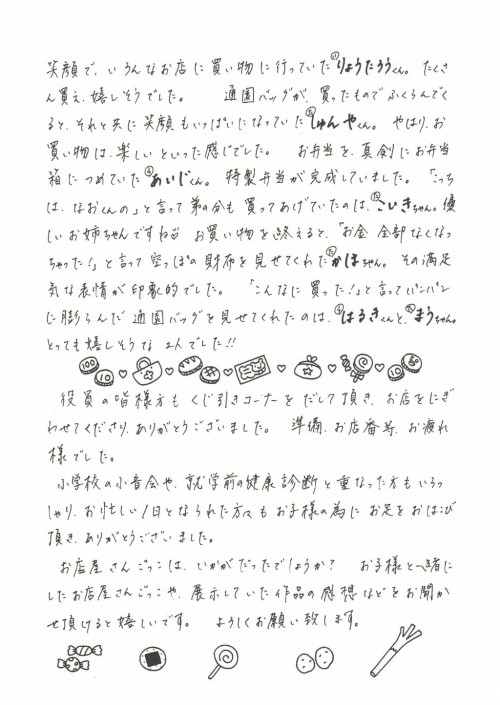 笑顔で、いろんなお店に買い物に行っていたりょうたろうくん。たくさ
ん買え、嬉しそうでした。 通園バッグが、買ったものでふくらんでく
ると、それと共に笑顔もいっぱいになっていたしゅんやくん。やはり、お
買い物は、楽しいといった感じでした。 お弁当を、真剣にお弁当
箱につめていたあいじくん。特製弁当が完成していました。「こっち
は、なおくんの」と言って弟の分も買ってあげていたのは、こいきちゃん。優
しいお姉ちゃんですね お買い物を終えると、「お金 全部なくなっ
ちゃった!」と言って空っぽの財布を見せてくれたかほちゃん。その満足
気な表情が印象的でした。 「こんなに買った!」と言ってパンパン
に膨らんだ通園バッグを見せてくれたのは、はるきくんと、まうちゃん。
とっても嬉しそうな2人でした!!
100 10 10
役員の皆様方もくじ引きコーナーをだして頂き、お店をにぎ
わせてくださり、ありがとうございました。 準備、お店番等、お疲れ
様でした。
小学校の小音会や、就学前の健康診断と重なった方もいらっ
しゃり、お忙しい1日となられた方々もお子様の為にお足をおはこび
頂き、ありがとうございました。
お店屋さんごっこは、いかがだったでしょうか? お子様と一緒に
したお店屋さんごっこや、展示していた作品の感想などをお聞か
せ頂けると嬉しいです。 よろしくお願い致します。